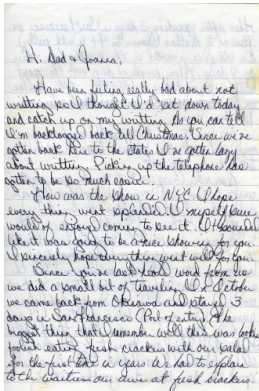 Hi Dad & Joanna,
Have been feeling really bad about not
writting so I thought I'd set down today
and catch up on my writting. As you can tell
I'm backlogged back till Christmas. Since we've
gotten back to the states I've gotten lazy
about writting. Picking up the telephone has
gotten to be so much easier.
How was the show in NYC. I hope
every thing went splendid. I myself sure
would of enjoyed coming to see it. It sounded
like it was going to be a nice showing for you.
I sincerely hope everything went well for you.
Since you've last heard word from us
we did a small bit of traveling. In October
we came back from Okinawa and stayed 3
days in San Francisco (Port of entry). The
biggest thing that I remember well this was
eating fresh crackers with our salad
for the first time in years. We had to explain
to the waitress our awe at fresh crackers.